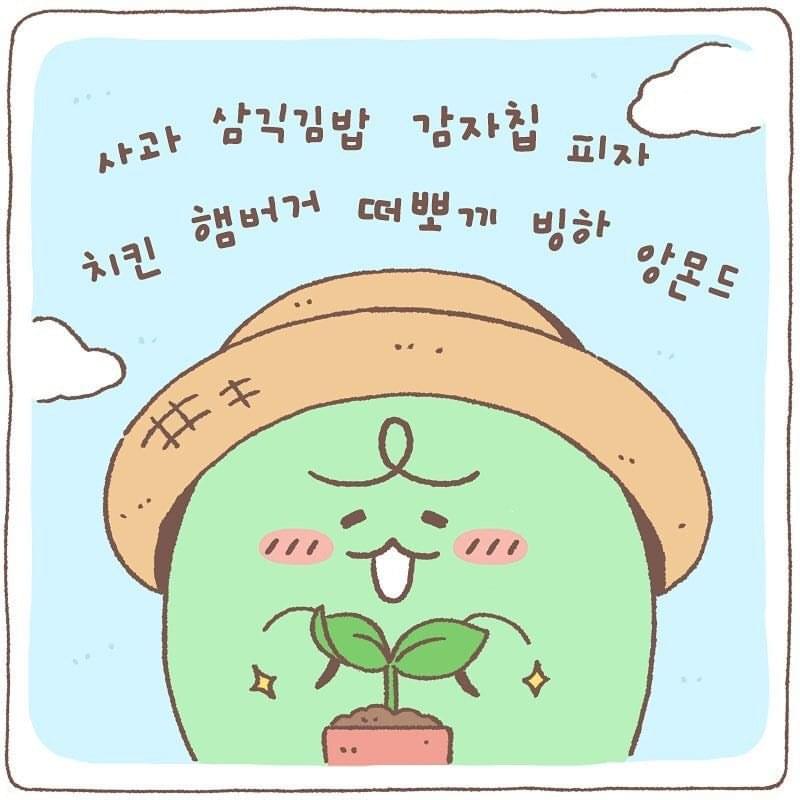 사과 삼긱김밥 감자칩 피자
치킨 햄버거 떠뽀끼 빙하 앙몬드